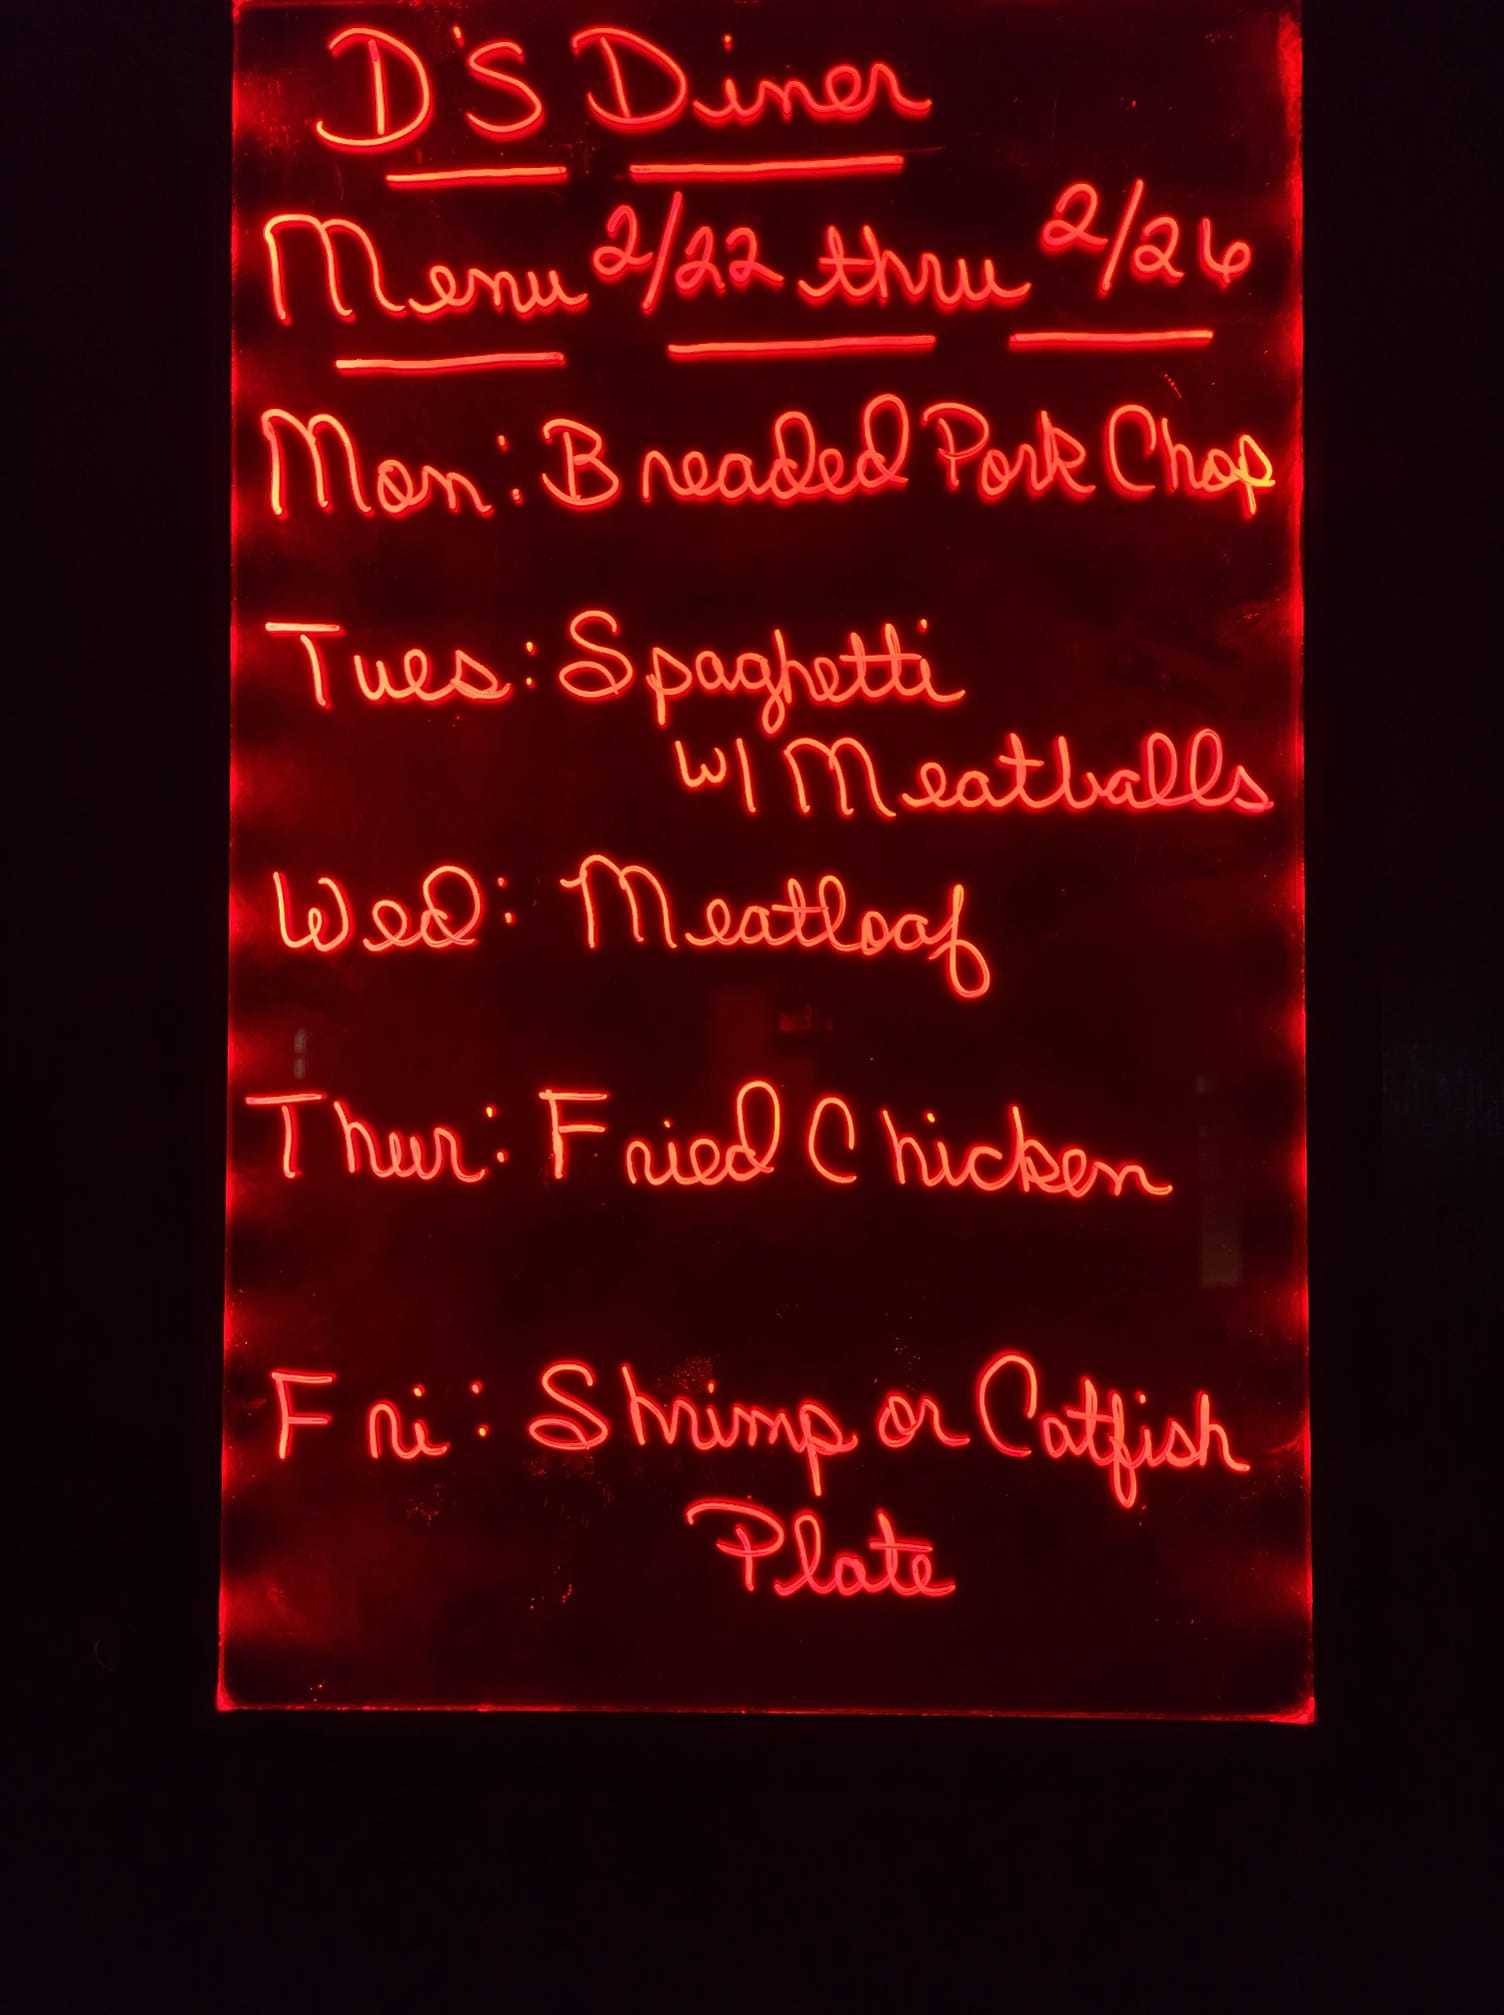 D'S Diner
Menu 2/22 thru 2/26
Mon: Breaded Pork Chop
Tues: Spaghetti
w/ Meatballs
Wed: Meatloaf
Thur: Fried Chicken
Fri: Shrimp or Catfish
Plate